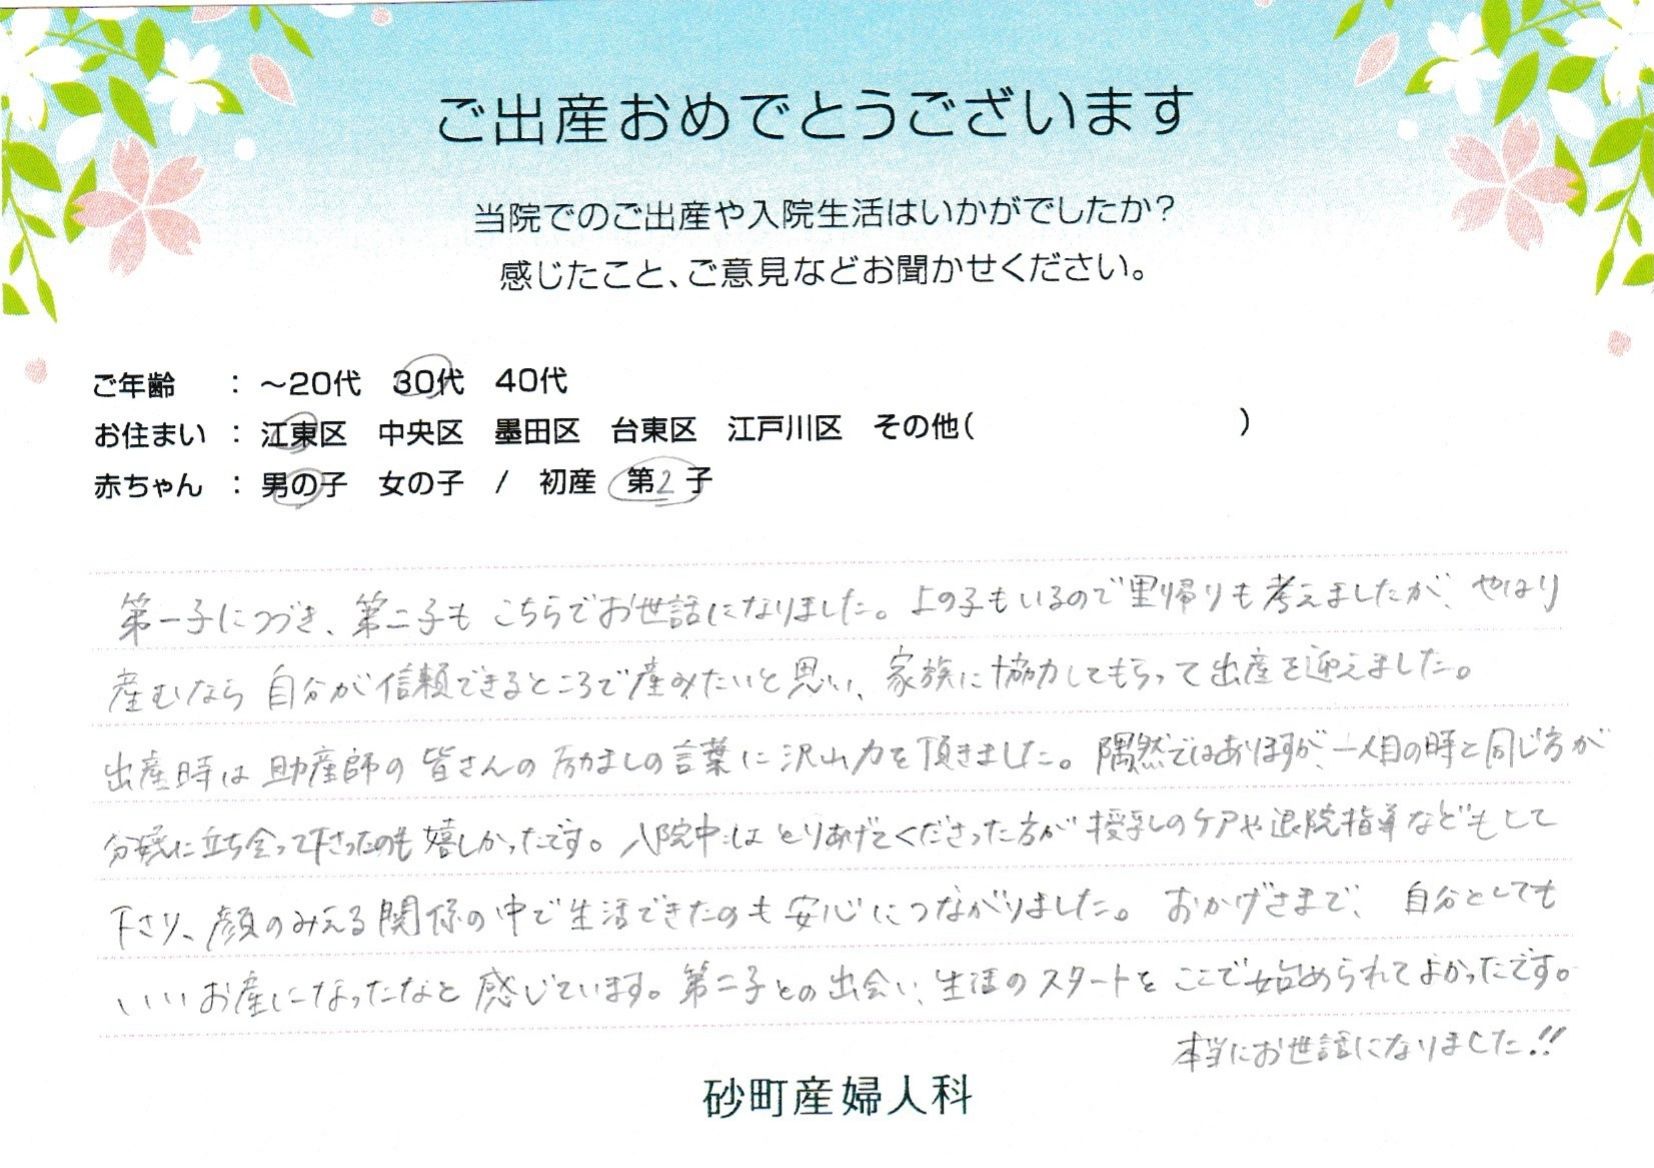 ご出産おめでとうございます
当院でのご出産や入院生活はいかがでしたか?
感じたこと、ご意見などお聞かせください。
ご年齢 : ~20代 30代 40代
お住まい : 江東区 中央区 墨田区 台東区 江戸川区 その他( )
赤ちゃん : 男の子 女の子 / 初産 第2子
第一子につづき、第二子も こちらでお世話になりました。上の子もいるので里帰りも考えましたが、やはり
産むなら 自分が信頼できるところで産みたいと思い、家族に協力してもらって出産を迎えました。
出産時は 助産師の皆さんの励ましの言葉に沢山力を頂きました。隅然ではありますが、一人目の時と同じ方が
分娩に立ち会って下さったのも嬉しかったです。入院中は とりあげてくださった方が授乳のケアや退院指導などもして
下さり、顔のみえる関係の中で生活できたのも安心につながりました。おかげさまで、自分としても
いいお産になったなと感じています。第二子との出会い、生活のスタートを ここで始められてよかったです。
本当にお世話になりました!!
砂町産婦人科